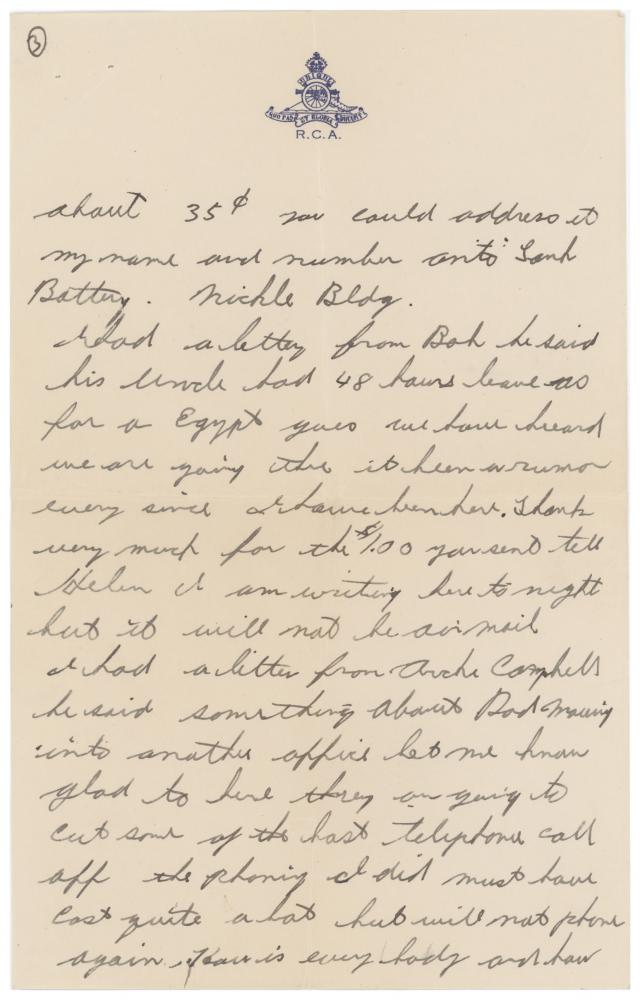 3
UBIQUE
QUO FAS ET GLORIA DUCUNT
R.C.A.
about 35¢ you could address it
my name and number anti Tank
Battery. Nickle Bldg.
I had a letter from Bob he said
his Uncle had 48 hours leave as
for a Egypt yues we have heard
we are going ther it been a rumor
every since I have been here. Thank
very much for the $1.00 you sent tell
Helen I am writing here to night
but it will not be air mail
I had a letter from Archie Campbell
he said something about Dad moving
into another office let me know
glad to here they are going to
cut some of the last telephone call
off the phoning I did must have
cost quite a lot but will not phone
again. How is every body and how